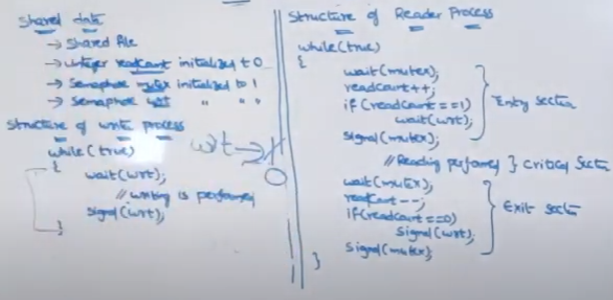 Shared data
→ Shared file
→ Integer readcount initialized to 0
→ Semaphore mutex initialized to 1
→ Semaphore wrt " " "
Structure of write process
while(true)
{
wait(wrt);
// writing is performed
signal(wrt);
}
wrt → 1
0
Structure of Reader Process
while(true)
{
wait(mutex);
readcount++;
if(readcount==1)
wait(wrt);
signal(mutex);
} Entry section
// Reading performed } Critical Section
wait(mutex);
readcount--;
if(readcount==0)
signal(wrt);
signal(mutex);
} Exit section
}